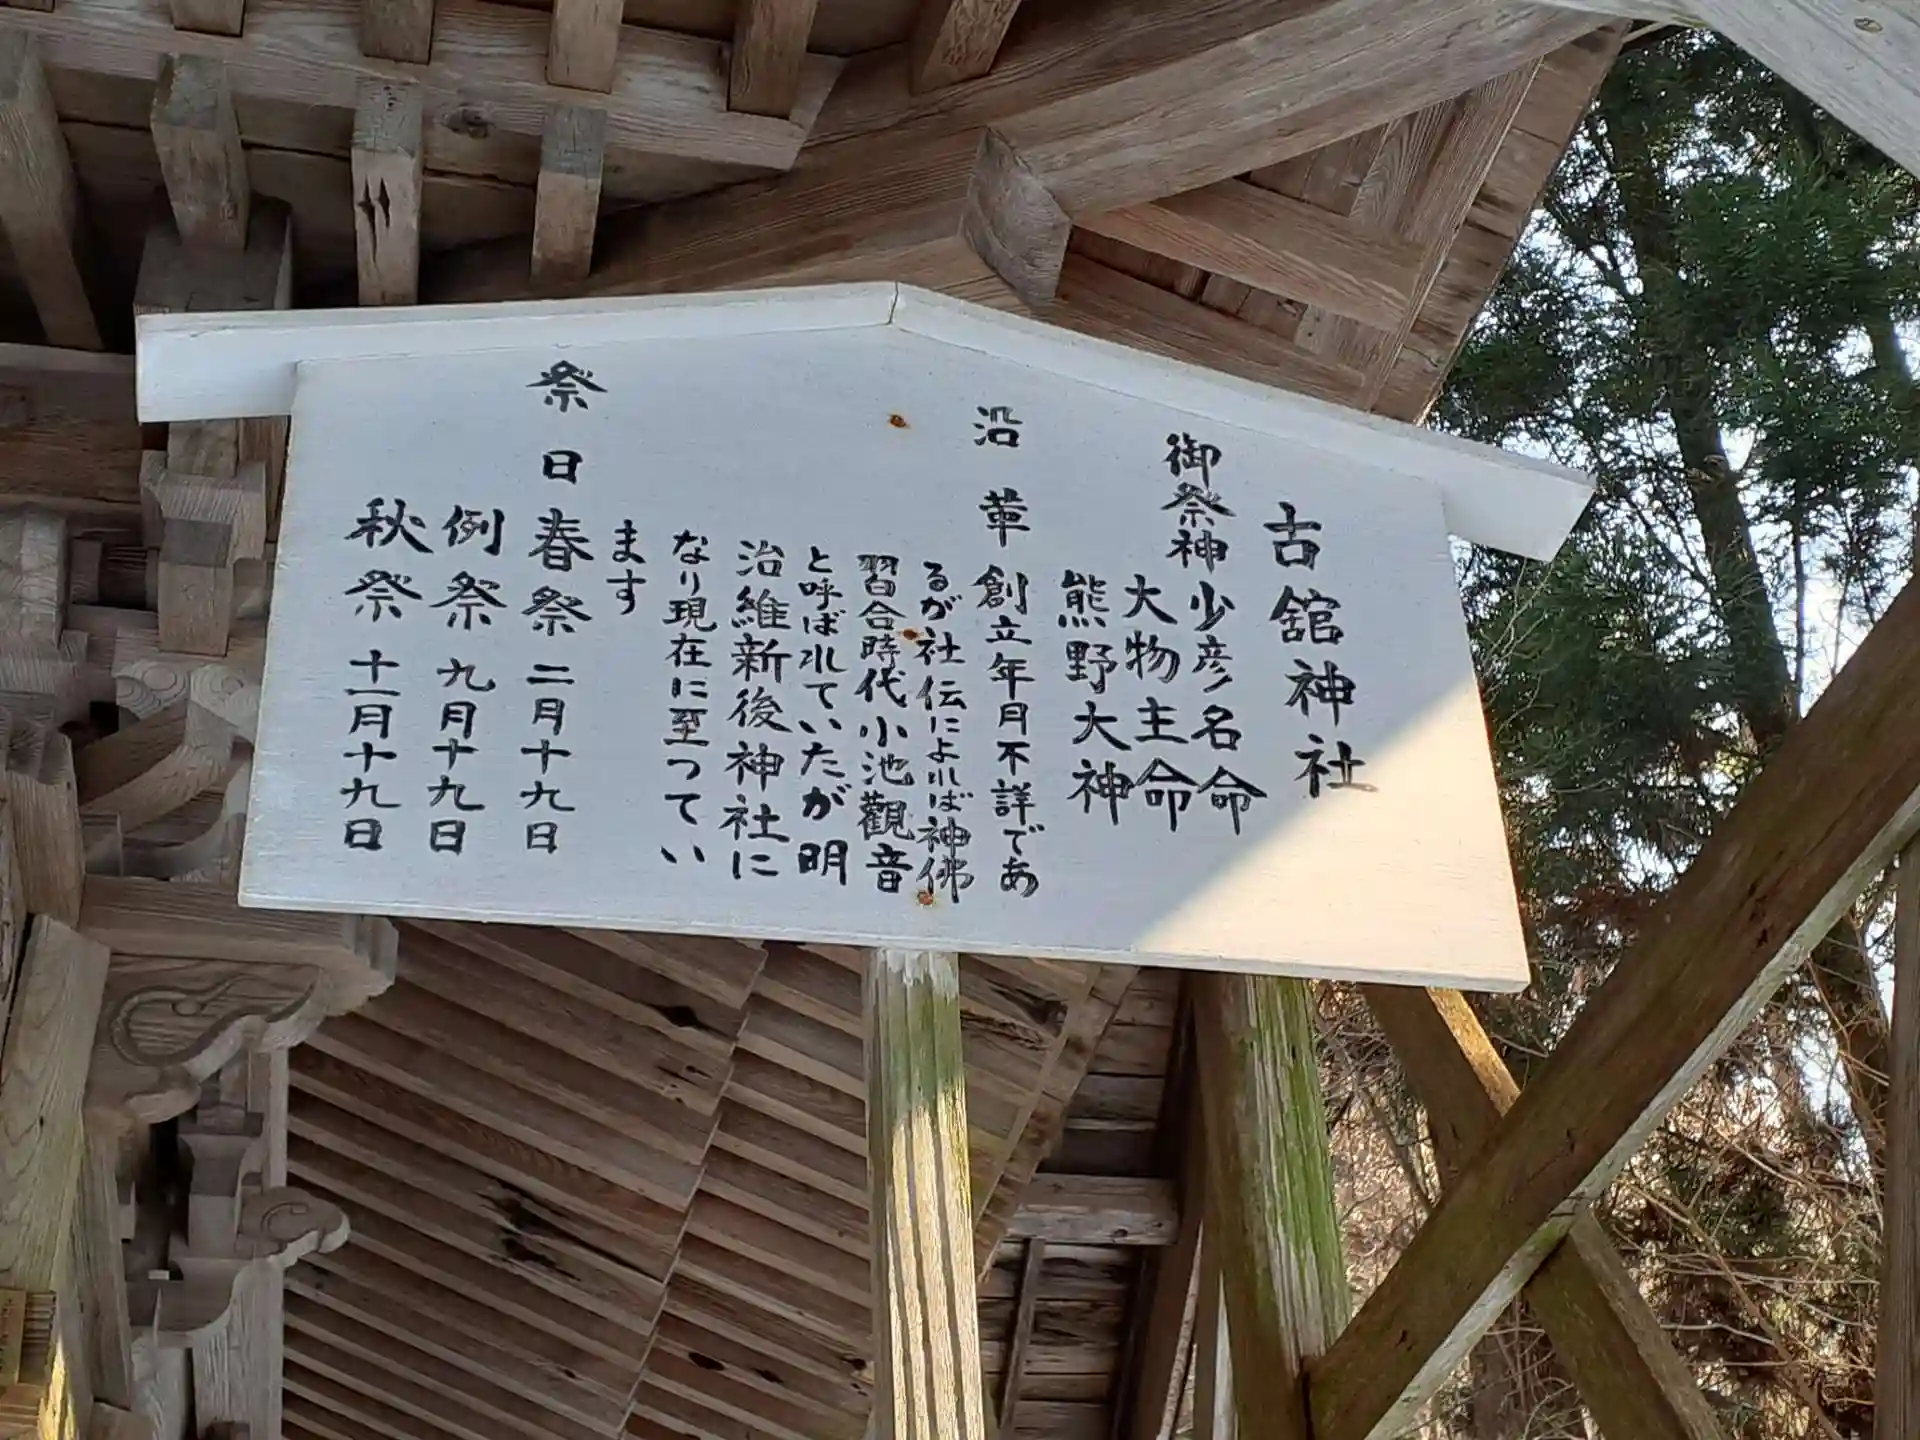 古舘神社
御祭神少彦名命
大物主命
熊野大神
沿革 創立年月不詳であ
るが社伝によれば神佛
習合時代小池觀音
と呼ばれていたが明
治維新後神社に
なり現在に至つてい
ます
祭日春祭 二月十九日
例祭 九月十九日
秋祭 十一月十九日